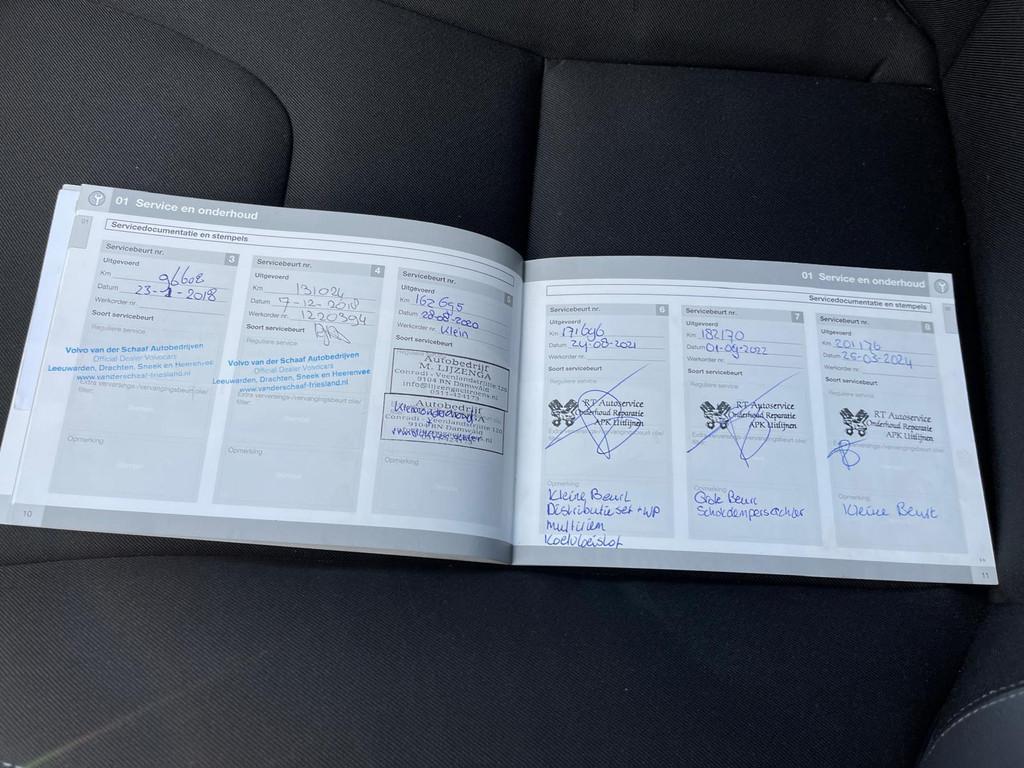 01 Service en onderhoud
Servicedocumentatie en stempels
Servicebeurt nr. 3
Uitgevoerd
Km 96602
Datum 23-1-2018
Werkorder nr.
Soort servicebeurt
Reguliere service
Volvo van der Schaaf Autobedrijven
Official Dealer Volvocars
Leeuwarden, Drachten, Sneek en Heerenveen
www.vanderschaaf-friesland.nl
Extra verversings-/vervangingsbeurt olie/
filter:
Opmerking
10
Servicebeurt nr. 4
Uitgevoerd
Km 131024
Datum 7-12-2018
Werkorder nr. 1220394
Soort servicebeurt
Reguliere service
Volvo van der Schaaf Autobedrijven
Official Dealer Volvocars
Leeuwarden, Drachten, Sneek en Heerenveen
www.vanderschaaf-friesland.nl
Extra verversings-/vervangingsbeurt olie/
filter:
Opmerking
Servicebeurt nr. 5
Uitgevoerd
Km 162695
Datum 28-08-2020
Werkorder nr. Klein
Soort servicebeurt
Autobedrijf
M. LIJZENGA
Conradi - Veenlandstrjitte 120
9104 BN Damwâld
info@lijzengacitroens.nl
0511-424173
Autobedrijf
Conradi - Veenlandstrjitte 120
9104 BN Damwâld
Opmerking
01 Service en onderhoud
Servicedocumentatie en stempels
Servicebeurt nr. 6
Uitgevoerd
Km 171696
Datum 24-08-2021
Werkorder nr.
Soort servicebeurt
Reguliere service
RT Autoservice
Onderhoud Reparatie
APK Uitlijnen
Opmerking
Kleine Beurt
Distributieset + WP
multiriem
Koelvloeistof
Servicebeurt nr. 7
Uitgevoerd
Km 182170
Datum 01-09-2022
Werkorder nr.
Soort servicebeurt
Reguliere service
RT Autoservice
Onderhoud Reparatie
APK Uitlijnen
Opmerking
Grote Beurt
Schokdempers achter
Servicebeurt nr. 8
Uitgevoerd
Km 201176
Datum 26-03-2024
Werkorder nr.
Soort servicebeurt
Reguliere service
RT Autoservice
Onderhoud Reparatie
APK Uitlijnen
Opmerking
Kleine Beurt
11